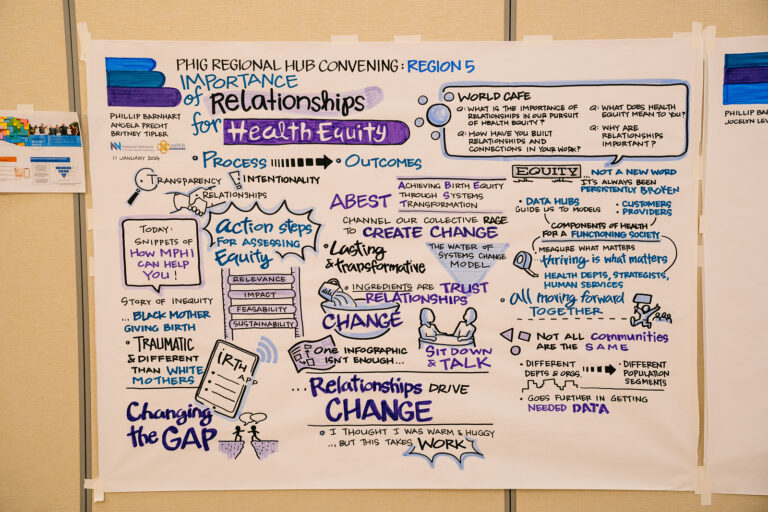 PHIG REGIONAL HUB CONVENING: REGION 5
IMPORTANCE
of Relationships
for Health Equity
PHILLIP BARNHART
ANGELA PRECHT
BRITNEY TIPLER
National Network
MPHI
11 JANUARY 2024
WORLD CAFE
Q: WHAT IS THE IMPORTANCE OF
RELATIONSHIPS IN OUR PURSUIT
OF HEALTH EQUITY?
Q: HOW HAVE YOU BUILT
RELATIONSHIPS AND
CONNECTIONS IN YOUR WORK?
Q: WHAT DOES HEALTH
EQUITY MEAN TO YOU?
Q: WHY ARE
RELATIONSHIPS
IMPORTANT?
• PROCESS • OUTCOMES
TRANSPARENCY
INTENTIONALITY
RELATIONSHIPS
TODAY:
SNIPPETS OF
HOW MPHI
CAN HELP
YOU!
Action steps
FOR ASSESSING
Equity
RELEVANCE
IMPACT
FEASABILITY
SUSTAINABILITY
STORY OF INEQUITY
... BLACK MOTHER
GIVING BIRTH
• TRAUMATIC
& DIFFERENT
THAN WHITE
MOTHERS
IRTH
APP
Changing
the GAP
ABEST
ACHIEVING BIRTH EQUITY
THROUGH SYSTEMS
TRANSFORMATION
CHANNEL OUR COLLECTIVE RAGE
TO CREATE CHANGE
• Lasting
& transformative
THE WATER OF
SYSTEMS CHANGE
MODEL
INGREDIENTS ARE TRUST
RELATIONSHIPS
CHANGE
ONE INFOGRAPHIC
ISN'T ENOUGH...
SIT DOWN
& TALK
... Relationships DRIVE
CHANGE
I THOUGHT I WAS WARM & HUGGY
... BUT THIS TAKES WORK
EQUITY ... NOT A NEW WORD
IT'S ALWAYS BEEN
PERSISTENTLY BROKEN
• DATA HUBS
GUIDE US TO MODELS
• CUSTOMERS
• PROVIDERS
COMPONENTS OF HEALTH
FOR A FUNCTIONING SOCIETY
MEASURE WHAT MATTERS
thriving is what matters
HEALTH DEPTS, STRATEGISTS,
HUMAN SERVICES
• All moving forward
TOGETHER
NOT ALL COMMUNITIES
ARE THE SAME
• DIFFERENT
DEPTS & ORGS
• DIFFERENT
POPULATION
SEGMENTS
• GOES FURTHER IN GETTING
NEEDED DATA
PHILLIP
JOCELYN